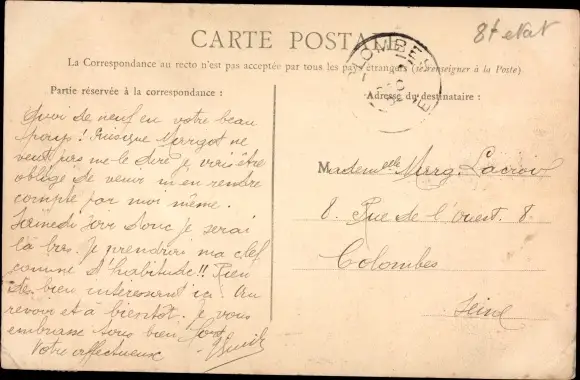 8t etat
CARTE POSTALE
COLOMBES
La Correspondance au recto n'est pas acceptée par tous les pays étrangers (se renseigner à la Poste)
Partie réservée à la correspondance :
Adresse du destinataire :
Quoi de neuf en votre beau
pays ! Puisque Margot ne
veut pas me le dire, je vais être
obligé de venir m'en rendre
compte par moi même.
Samedi soir donc je serai
là bas. Je prendrai ma clef
comme d'habitude !! Rien
de bien intéressant ici. Au
revoir et à bientôt. Je vous
embrasse tous bien fort
Votre affectueux
Mademoiselle Marg. Lacroix
8. Rue de l'Ouest. 8.
Colombes
Seine